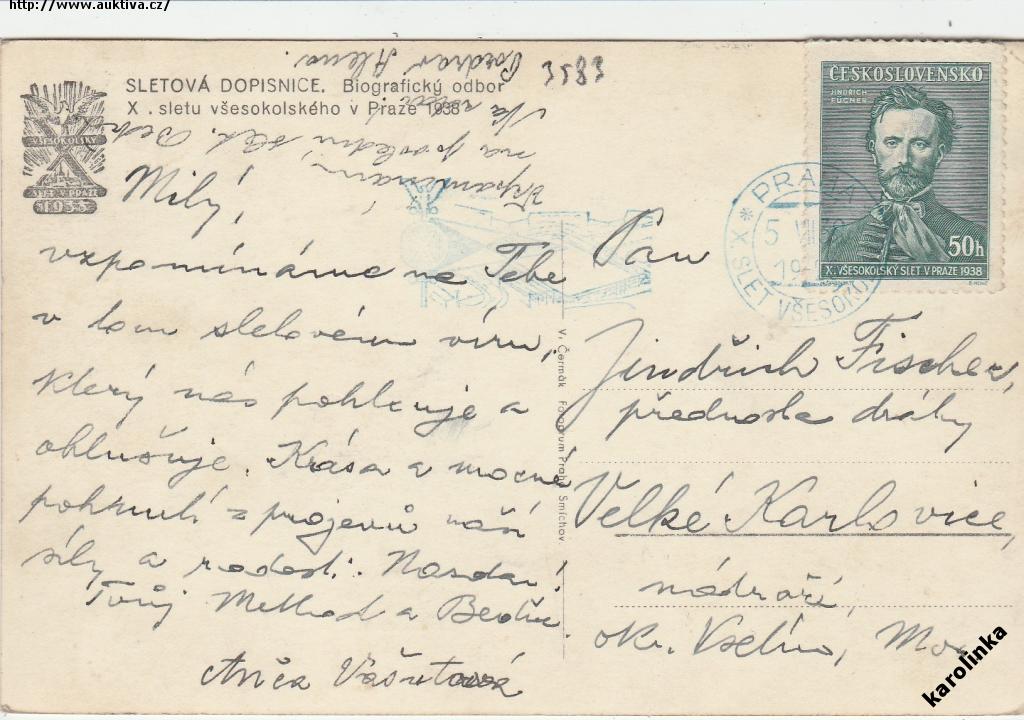 http://www.auktiva.cz/
SLETOVÁ DOPISNICE. Biografický odbor
X. sletu všesokolského v Praze 1938
VŠESOKOLSKÝ
X
SLET V PRAZE
Pozdrav Alena.
3583
Vzpomínám
na poslední slet.
Milý,
vzpomínáme na Tebe
v tom sletovém víru,
který nás pohlcuje a
ohlušuje. Krása a mocné
pohnutí z projevů naší
síly a radosti. Nazdar!
Tvůj Method a Bedřic.
Anča Vašutová
V. Čermák Fototrum Praha Smíchov
ČESKOSLOVENSKO
JINDŘICH
FÜGNER
50h
X. VŠESOKOLSKÝ SLET V PRAZE 1938
PRAHA
X SLET VŠESOKO
Pan
Jindřich Fischer,
přednosta dráhy
Velké Karlovice,
nádraží,
okr. Vsetín, Mor
karolinka